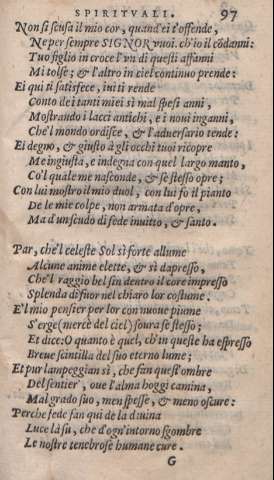 SPIRITVALI. 97
Non si scusa il mio cor, quand'ei t'offende,
Ne per sempre SIGNOR vuoi. ch'io il cõdanni:
Tuo figlio in croce l'vn di questi affanni
Mi tolse; & l'altro in ciel continuo prende:
Ei qui ti satisfece, ini ti rende
Conto de i tanti miei sì mal spesi anni,
Mostrando i lacci antichi, e i noui inganni,
Che'l mondo ordisce, & l'aduersario tende:
Ei degno, & giusto à gli occhi tuoi ricopre
Me ingiusta, e indegna con quel largo manto,
Co'l quale me nasconde, & se stesso opre;
Con lui mostro il mio duol, con lui fo il pianto
De le mie colpe, non armata d'opre,
Ma d'un scudo di fede inuitto, & santo.
Par, che'l celeste Sol sì forte allume
Alcune anime elette, & sì dapresso,
Che'l raggio bel fin dentro il core impresso
Splenda di fuor nel chiaro lor costume.
E'l mio pensier per lor con nuoue piume
S'erge (mercè del ciel) soura se stesso;
Et dice: O quanto è quel, ch'in queste ha espresso
Breue scintilla del suo eterno lume;
Et pur lampeggian sì, che fan quest'ombre
Del sentier, oue l'alma hoggi camina,
Mal grado suo, men spesse, & meno oscure:
Perche fede fan qui de la diuina
Luce là su, che d'ogn'intorno sgombre
Le nostre tenebrose humane cure.
G